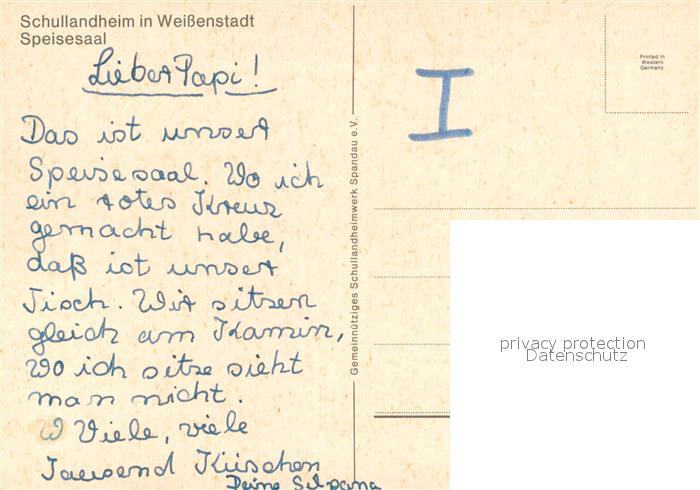 Schullandheim in Weißenstadt
Speisesaal
Lieber Papi!
Das ist unser
Speisesaal. Wo ich
ein rotes Kreuz
gemacht habe,
daß ist unser
Tisch. Wir sitzen
gleich am Kamin,
Wo ich sitze sieht
man nicht.
W Viele, viele
Tausend Küschen
Deine Silvana
Gemeinnütziges Schullandheimwerk Spandau e.V.
I
Printed in
Western
Germany
privacy protection
Datenschutz